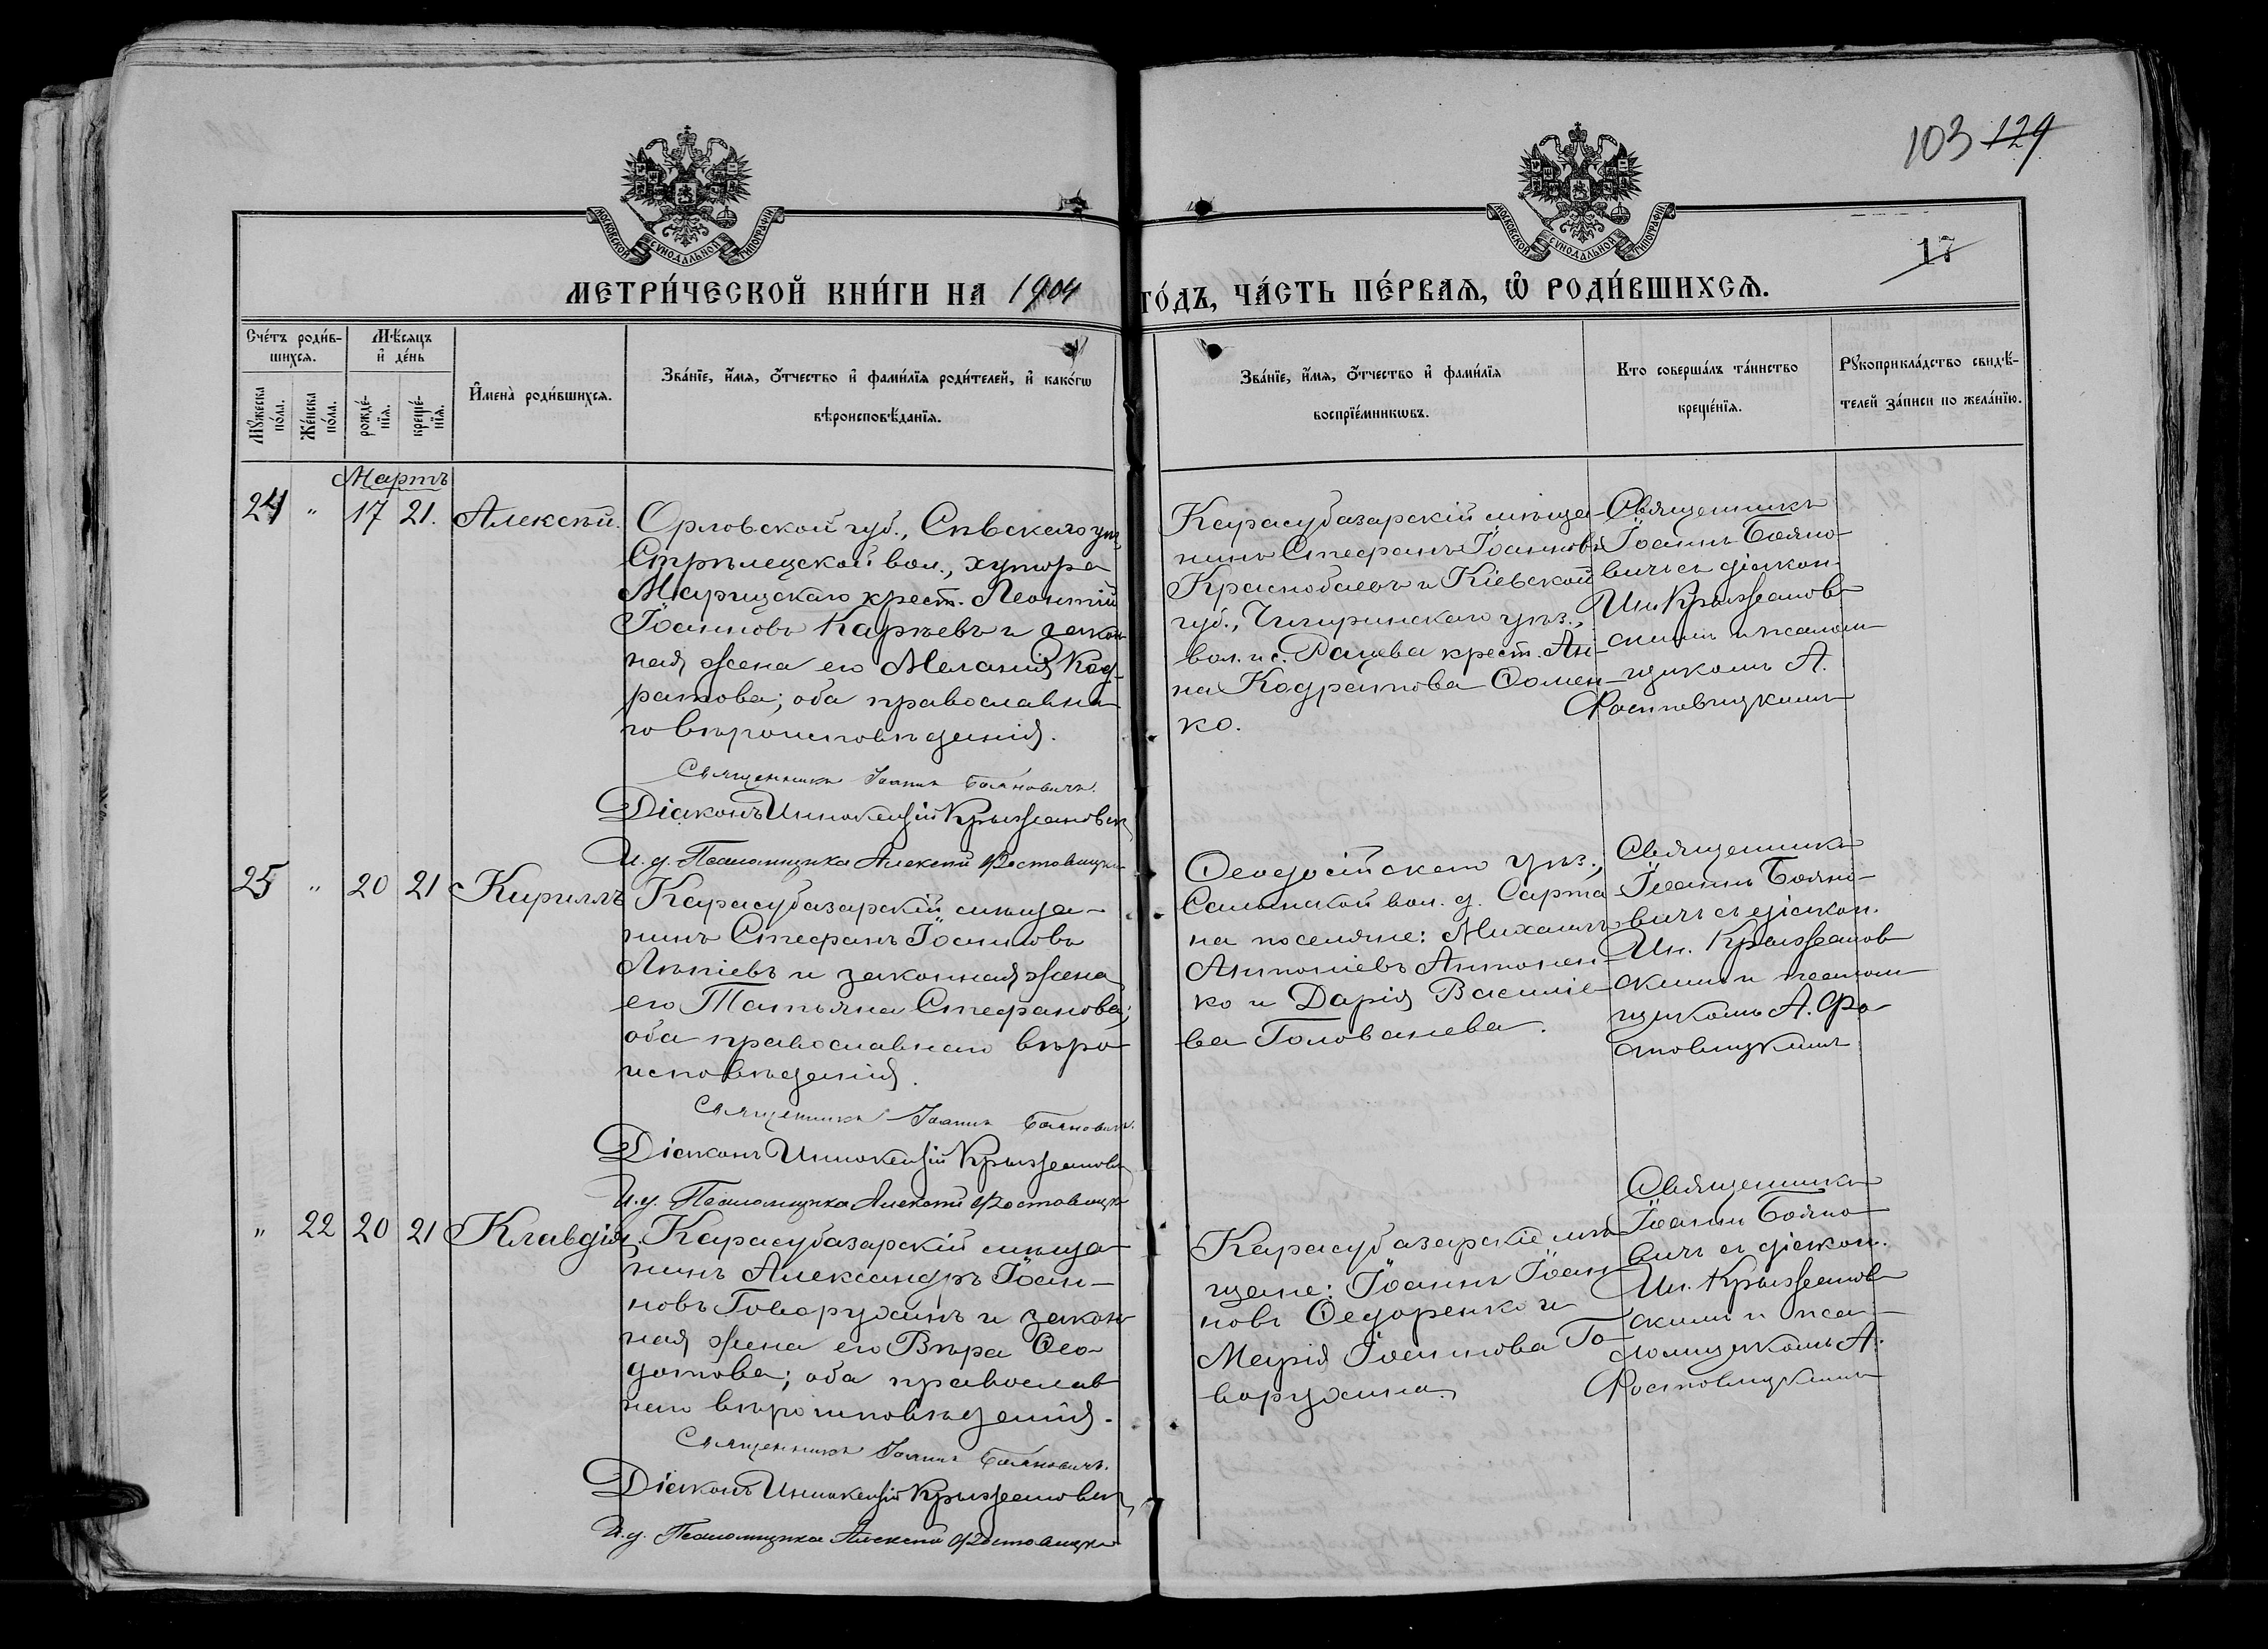 103 129
МОСКОВСКОЙ СѴНОДАЛЬНОЙ ТИПОГРАФІИ
МОСКОВСКОЙ СѴНОДАЛЬНОЙ ТИПОГРАФІИ
МЕТРИ́ЧЕСКОЙ КНИ́ГИ НА 1904 ГО́ДЪ, ЧА́СТЬ ПЕ́РВАѦ, Ѡ҆ РОДИ́ВШИХСѦ.
Сче́тъ роди́в-
шихсѧ.
Мꙋжеска по́ла.
Же́нска по́ла.
Мѣ́сѧцъ
и҆ де́нь
рожде́-
нїѧ.
креще́-
нїѧ.
И҆мена̀ роди́вшихсѧ.
Зва́нїе, и҆́мѧ, ѻ҆́тчество и҆ фами́лїѧ роди́телей, и҆ како́гѡ
вѣроисповѣ́данїѧ.
Зва́нїе, и҆́мѧ, ѻ҆́тчество и҆ фами́лїѧ
воспрїе́мникѡвъ.
Кто соверша́лъ та́инство
креще́нїѧ.
Рꙋкоприкла́дство свидѣ́-
телей за́писи по жела́нїю.
Мартъ
24 " 17 21. Алексѣй.
Орловской губ., Сѣвскаго уѣз.,
Стрѣлецской вол., хутора
Марицскаго крест. Леонтій
Іоанновъ Карпевъ и закон
ная жена его Меланія Код-
ратова; оба православна-
го вѣроисповѣданія.
Священникъ Іоаннъ Бояновичъ.
Діаконъ Иннокентій Крыжановск
И. д. Псаломщика Алексѣй Ростовицк
Карасубазарскій мѣща-
нинъ Стефанъ Іоанновъ
Краснобаевъ и Кіевской
губ., Чигиринскаго уѣз.,
вол. и с. Рацева крест. Ан-
на Кодратова Ѳомен-
ко.
Священникъ
Іоаннъ Бояно-
вичъ съ діакон.
Ин. Крыжанов-
скимъ и псалом-
щикомъ А.
Ростовицкимъ
25 " 20 21 Кириллъ
Карасубазарскій мѣща-
нинъ Стефанъ Іоанновъ
и законная жена
его Татьяна Стефанова;
оба православнаго вѣро-
исповѣданія.
Священникъ Іоаннъ Бояновичъ.
Діаконъ Иннокентій Крыжановск
И. д. Псаломщика Алексѣй Ростовицк
Ѳеодосійскаго уѣз.,
Салынской вол. д. Сарта
на поселяне: Михаилъ
Антоніевъ Антонен-
ко и Дарія Василіе-
ва Голованева.
Священникъ
Іоаннъ Бояно-
вичъ съ діакон.
Ин. Крыжанов
скимъ и псалом-
щикомъ А. Ро-
стовицкимъ
" 22 20 21 Клавдія.
Карасубазарскій мѣща-
нинъ Александръ Іоан-
новъ Говорухинъ и закон
ная жена его Вѣра Ѳео-
дотова; оба православ
наго вѣроисповѣданія.
Священникъ Іоаннъ Бояновичъ.
Діаконъ Иннокентій Крыжановск
И. д. Псаломщика Алексѣй Ростовицк
Карасубазарскіе мѣ-
щане: Іоаннъ Іоан-
новъ Ѳедоренко и
Марія Іоаннова Го-
ворухина.
Священникъ
Іоаннъ Бояно-
вичъ съ діакон.
Ин. Крыжанов
скимъ и пса-
ломщикомъ А.
Ростовицкимъ